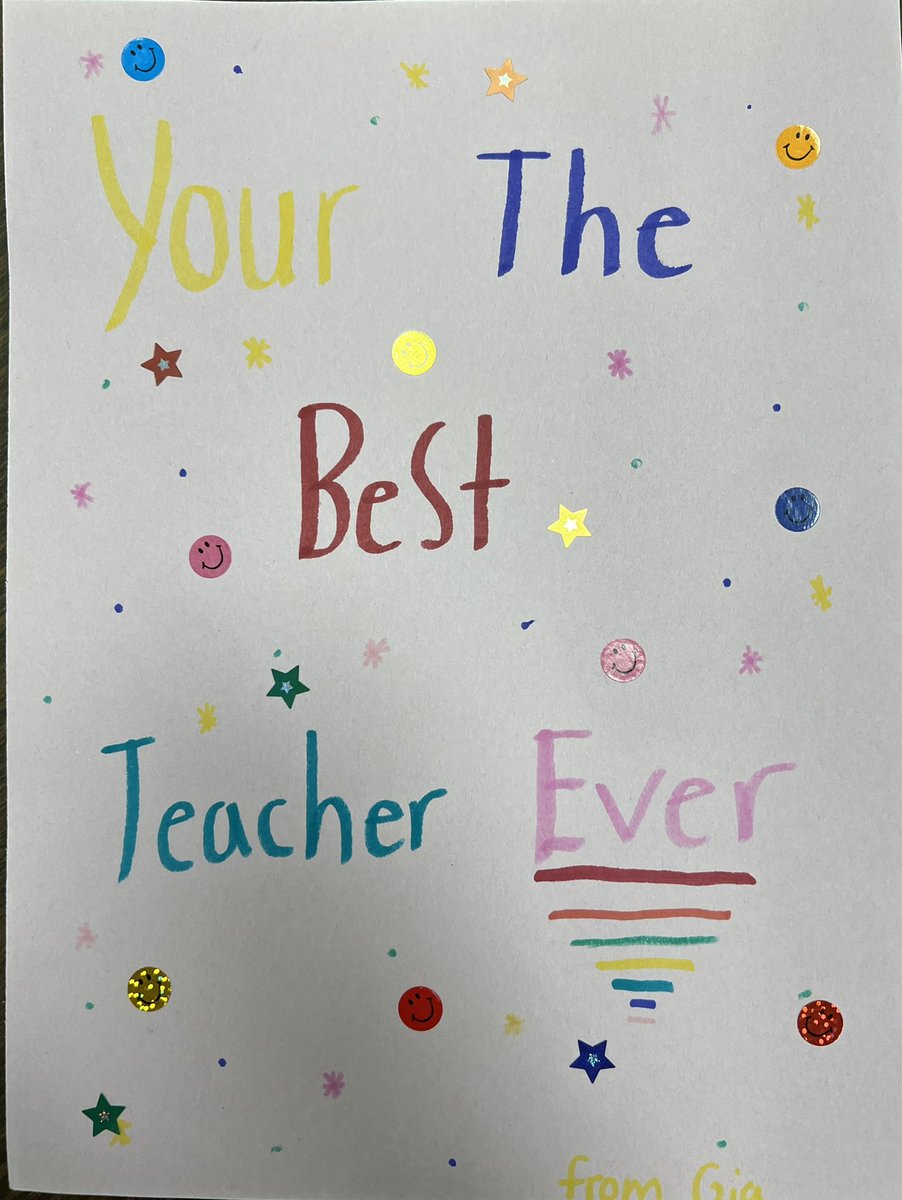 Your The
BeSt
Teacher Ever
from Gia